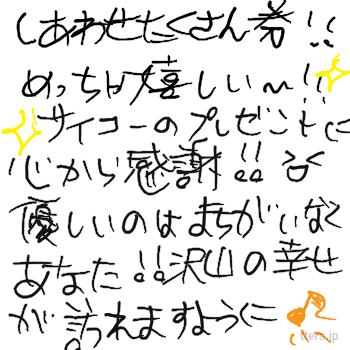 しあわせたくさん券!!
めっちゃ嬉しい〜!!
サイコーのプレゼントに
心から感謝!!
優しいのはまちがいなく
あなた!!沢山の幸せ
が訪れますように
iters.jp